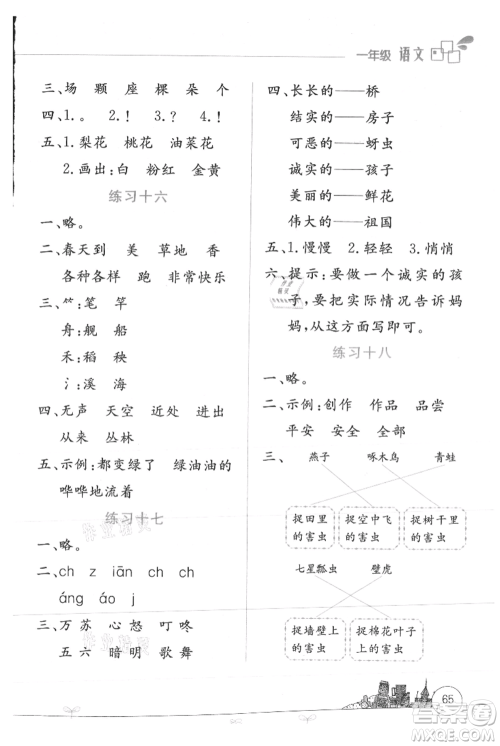 一年级 语文
三、场 颗 座 棵 朵 个
四、1.。 2.！ 3.！ 4.？
五、1.梨花 桃花 油菜花
2.画出：白 粉红 金黄
练习十六
一、略。
二、春天到 美 草地 香
各种各样 跑 非常快乐
三、⺮：笔 竿
舟：舰 船
禾：稻 秧
氵：溪 海
四、无声 天空 近处 进出
从来 丛林
五、示例：都变绿了 绿油油的
哗哗地流着
练习十七
一、略。
二、ch z iān ch zh
áng áo j
三、万 苏 心 怒 叮 咚
五 六 暗 明 歌 舞
四、长长的——桥
结实的——房子
可恶的——蚜虫
诚实的——孩子
美丽的——鲜花
伟大的——祖国
五、1.慢慢 2.轻轻 3.悄悄
六、提示：要做一个诚实的孩
子，要把实际情况告诉妈
妈。照实写即可。
练习十八
一、略。
二、示例：创作 作品 品尝
平安 安全 全部
三、 燕子 啄木鸟 青蛙
捉田里的害虫 捉空中飞的害虫 捉树干里的害虫
七星瓢虫 壁虎
捉墙壁上的害虫 捉棉花叶子上的害虫
65